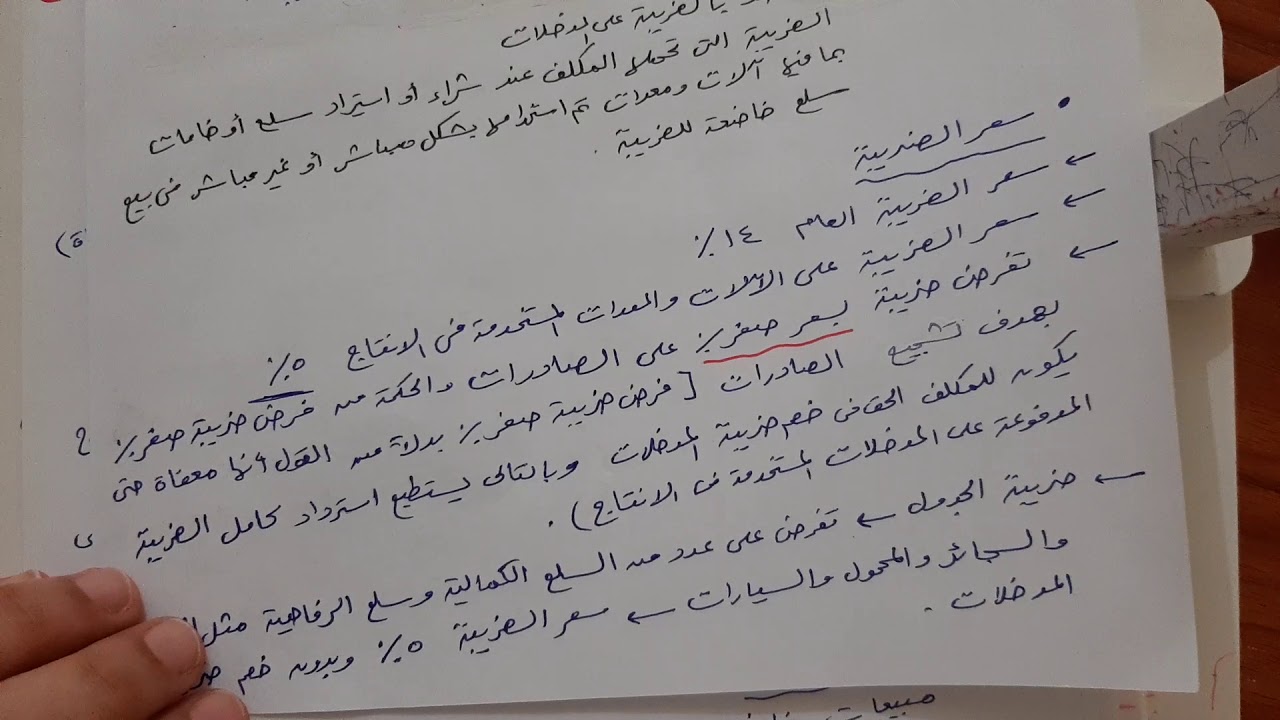 يا لضريبة على المدخلات
الضريبة التى تحملها المكلف عند شراء أو استيراد سلع أو خامات
بما فيها آلات ومعدات تم استخدامها بشكل مباشر أو غير مباشر فى بيع
سلع خاضعة للضريبة .
• سعر الضريبة
← سعر الضريبة العام ١٤٪
← سعر الضريبة على الآلات والمعدات المستخدمة فى الانتاج ٥٪
← تفرض ضريبة بسعر صفر٪ على الصادرات والحكمة من فرض ضريبة صفر٪
بهدف تشجيع الصادرات [ فرض ضريبة صفر٪ بدلاً من القول أنها معفاة حتى
يكون للمكلف الحق فى خصم ضريبة المدخلات وبالتالى يستطيع استرداد كامل الضريبة
المدفوعة على المدخلات المستخدمة فى الانتاج ) .
← ضريبة الجدول ← تفرض على عدد من السلع الكمالية وسلع الرفاهية مثل
والسجائر والمحمول والسيارات ← سعر الضريبة ٥٪ وبدون خصم
المدخلات .
مبيعات